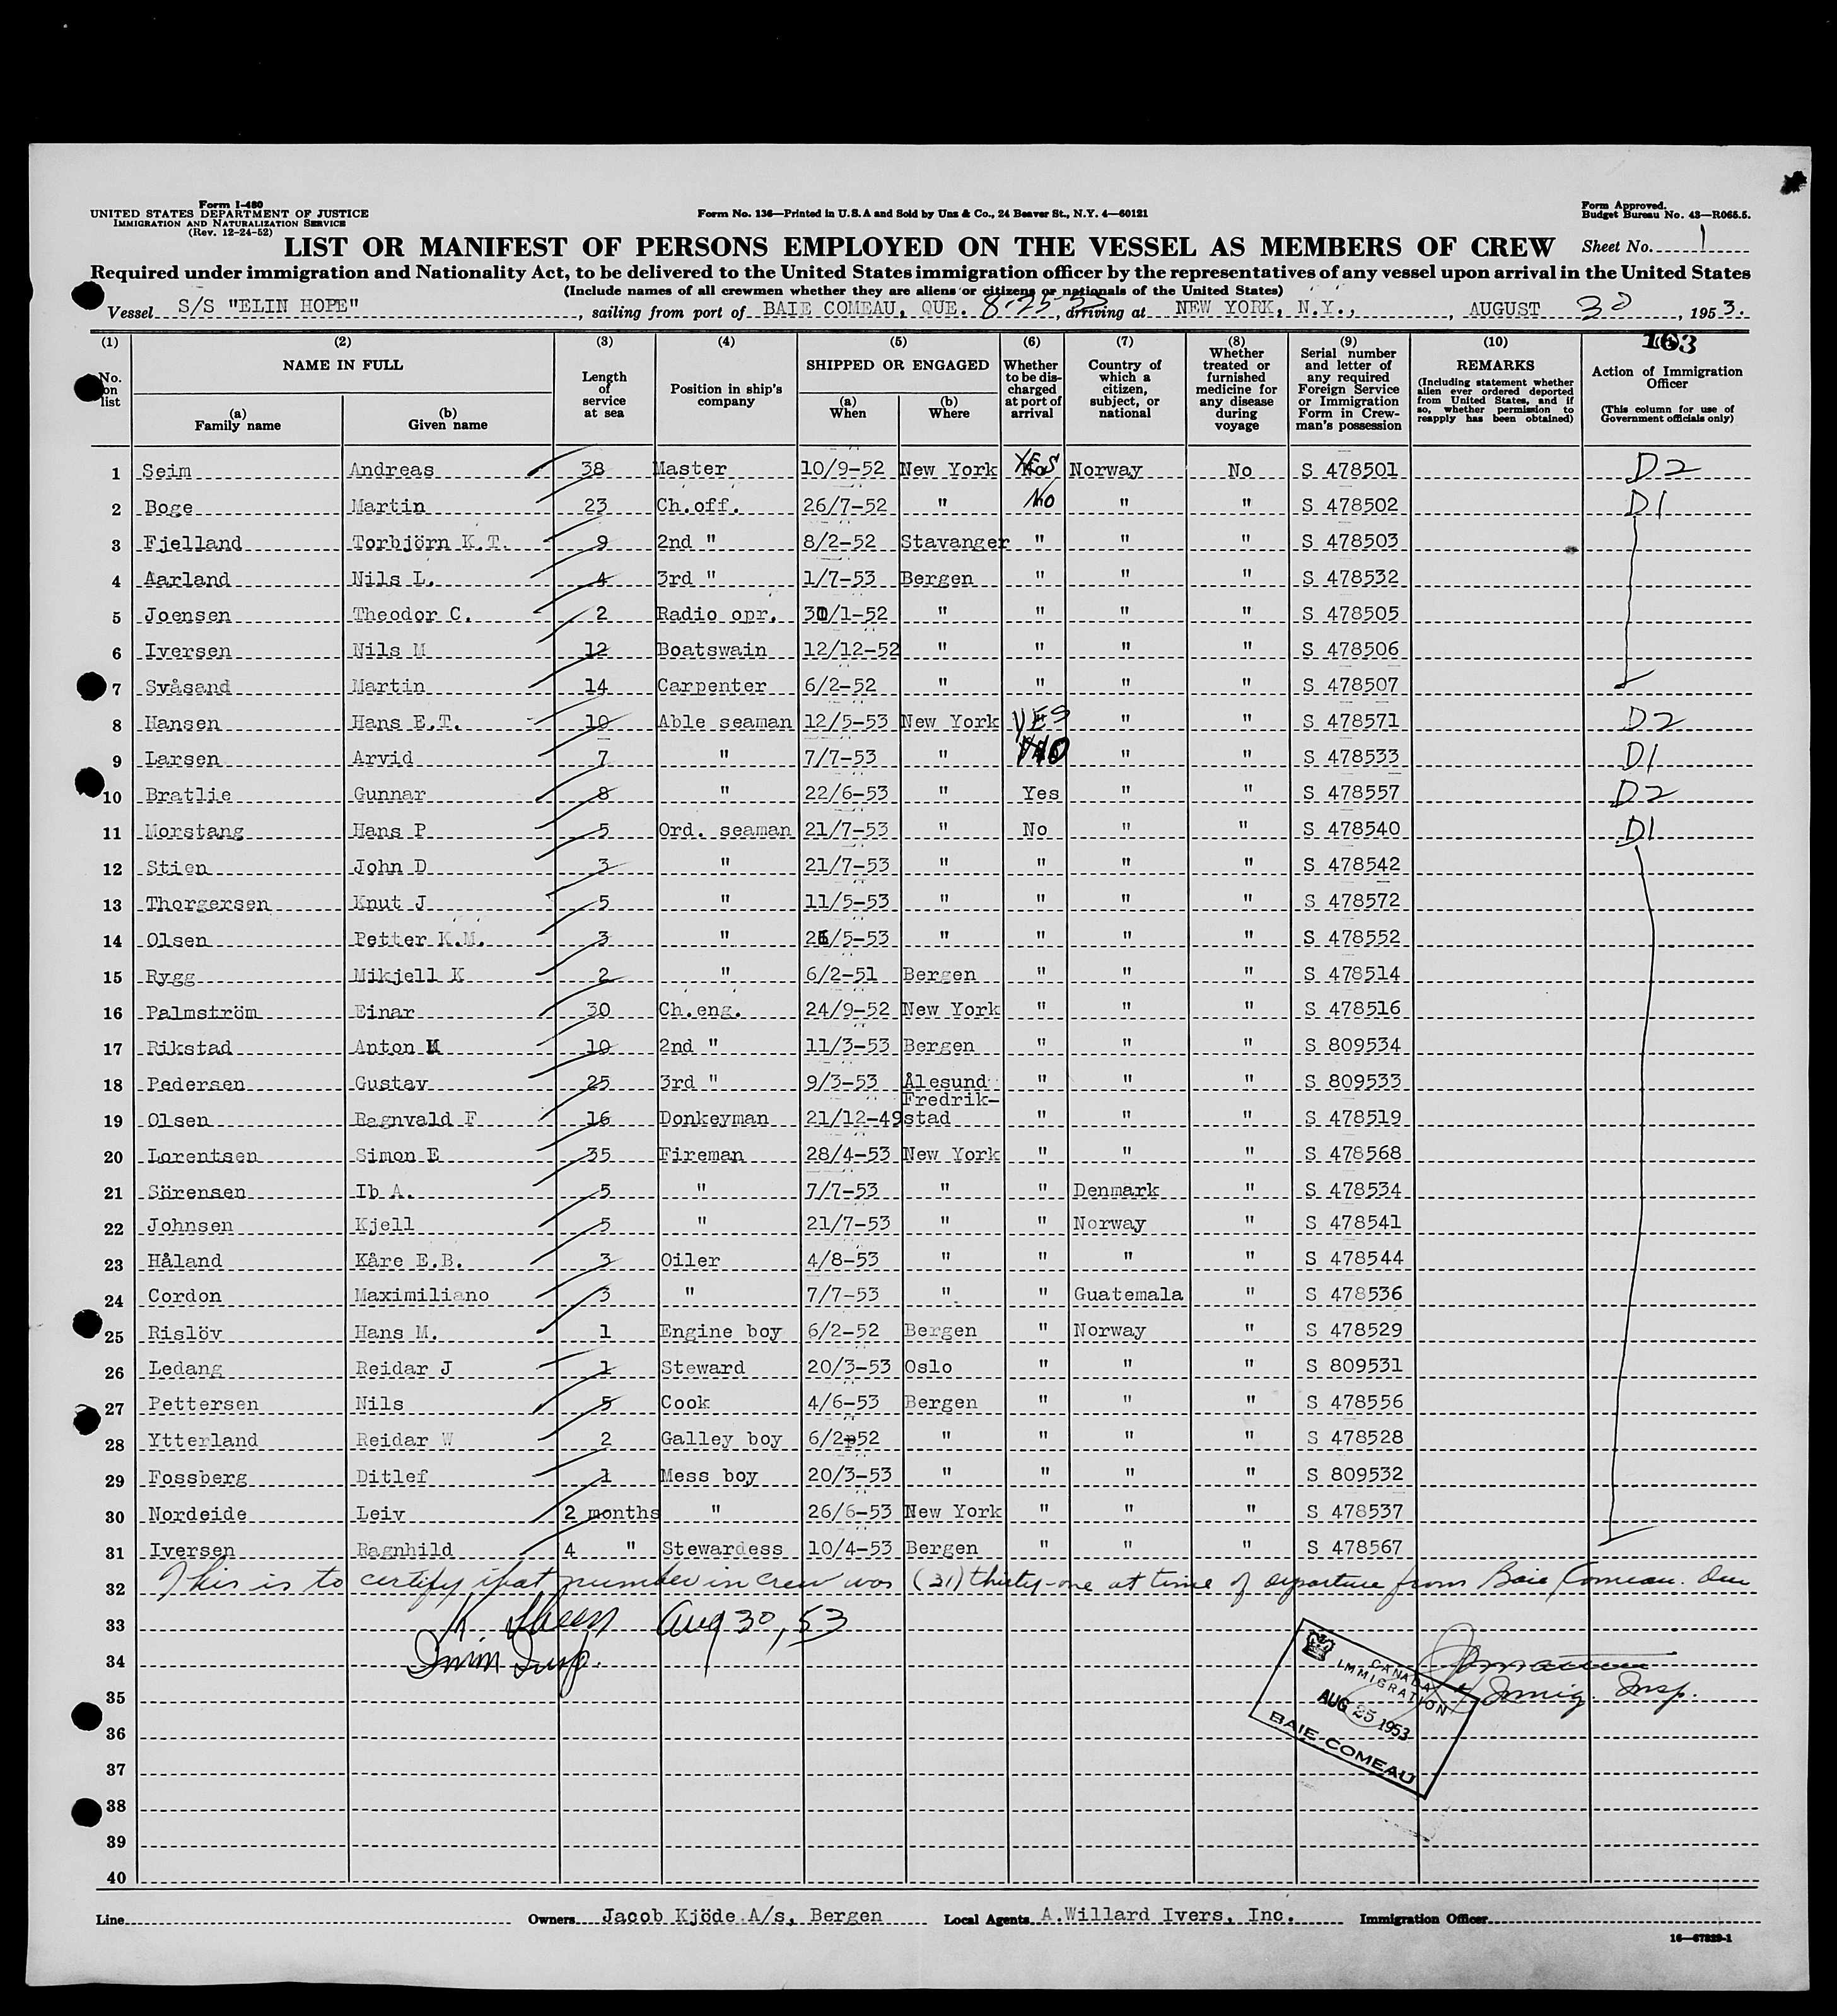 Form I-480
UNITED STATES DEPARTMENT OF JUSTICE
IMMIGRATION AND NATURALIZATION SERVICE
(Rev. 12-24-52)
Form No. 136—Printed in U.S.A and Sold by Unz & Co., 24 Beaver St., N.Y. 4—60121
Form Approved.
Budget Bureau No. 43—R065.5.
LIST OR MANIFEST OF PERSONS EMPLOYED ON THE VESSEL AS MEMBERS OF CREW Sheet No. 1
Required under immigration and Nationality Act, to be delivered to the United States immigration officer by the representatives of any vessel upon arrival in the United States
(Include names of all crewmen whether they are aliens or citizens or nationals of the United States)
Vessel S/S "ELIN HOPE", sailing from port of BAIE COMEAU, QUE. 8-25-53, arriving at NEW YORK, N.Y., AUGUST 30, 1953.
(1) No. on list
(2) NAME IN FULL
(a) Family name
(b) Given name
(3) Length of service at sea
(4) Position in ship's company
(5) SHIPPED OR ENGAGED
(a) When
(b) Where
(6) Whether to be discharged at port of arrival
(7) Country of which a citizen, subject, or national
(8) Whether treated or furnished medicine for any disease during voyage
(9) Serial number and letter of any required Foreign Service or Immigration Form in Crewman's possession
(10) REMARKS
(Including statement whether alien ever ordered deported from United States, and if so, whether permission to reapply has been obtained)
163
Action of Immigration Officer
(This column for use of Government officials only)
1 Seim Andreas 38 Master 10/9-52 New York YES Norway No S 478501 D2
2 Boge Martin 23 Ch.off. 26/7-52 " No " " S 478502 D1
3 Fjelland Torbjörn K.T. 9 2nd " 8/2-52 Stavanger " " " S 478503
4 Aarland Nils L. 4 3rd " 1/7-53 Bergen " " " S 478532
5 Joensen Theodor C. 2 Radio opr. 30/1-52 " " " " S 478505
6 Iversen Nils M 12 Boatswain 12/12-52 " " " " S 478506
7 Svåsand Martin 14 Carpenter 6/2-52 " " " " S 478507
8 Hansen Hans E.T. 10 Able seaman 12/5-53 New York YES " " S 478571 D2
9 Larsen Arvid 7 " 7/7-53 " NO " " S 478533 D1
10 Bratlie Gunnar 8 " 22/6-53 " Yes " " S 478557 D2
11 Morstang Hans P 5 Ord. seaman 21/7-53 " No " " S 478540 D1
12 Stien John D 3 " 21/7-53 " " " " S 478542
13 Thorgersen Knut J 5 " 11/5-53 " " " " S 478572
14 Olsen Petter K.M. 3 " 26/5-53 " " " " S 478552
15 Rygg Mikjell K 2 " 6/2-51 Bergen " " " S 478514
16 Palmström Einar 30 Ch.eng. 24/9-52 New York " " " S 478516
17 Rikstad Anton M 10 2nd " 11/3-53 Bergen " " " S 809534
18 Pedersen Gustav 25 3rd " 9/3-53 Ålesund " " " S 809533
19 Olsen Ragnvald F 16 Donkeyman 21/12-49 Fredrik-stad " " " S 478519
20 Lorentsen Simon E 35 Fireman 28/4-53 New York " " " S 478568
21 Sörensen Ib A. 5 " 7/7-53 " " Denmark " S 478534
22 Johnsen Kjell 5 " 21/7-53 " " Norway " S 478541
23 Håland Kåre E.B. 3 Oiler 4/8-53 " " " " S 478544
24 Cordon Maximiliano 3 " 7/7-53 " " Guatemala " S 478536
25 Rislöv Hans M. 1 Engine boy 6/2-52 Bergen " Norway " S 478529
26 Ledang Reidar J 1 Steward 20/3-53 Oslo " " " S 809531
27 Pettersen Nils 5 Cook 4/6-53 Bergen " " " S 478556
28 Ytterland Reidar W 2 Galley boy 6/2-52 " " " " S 478528
29 Fossberg Ditlef 1 Mess boy 20/3-53 " " " " S 809532
30 Nordeide Leiv 2 months " 26/6-53 New York " " " S 478537
31 Iversen Ragnhild 4 " Stewardess 10/4-53 Bergen " " " S 478567
32 This is to certify that number in crew was (31) thirty-one at time of departure from Baie Comeau. Que
33 K. Aug 30, 53
34 Imm Insp.
CANADA
IMMIGRATION
AUG 25 1953
BAIE-COMEAU
35 Immig. Insp.
36
37
38
39
40
Line Owners Jacob Kjöde A/s, Bergen Local Agents A.Willard Ivers, Inc. Immigration Officer
16—67829-1